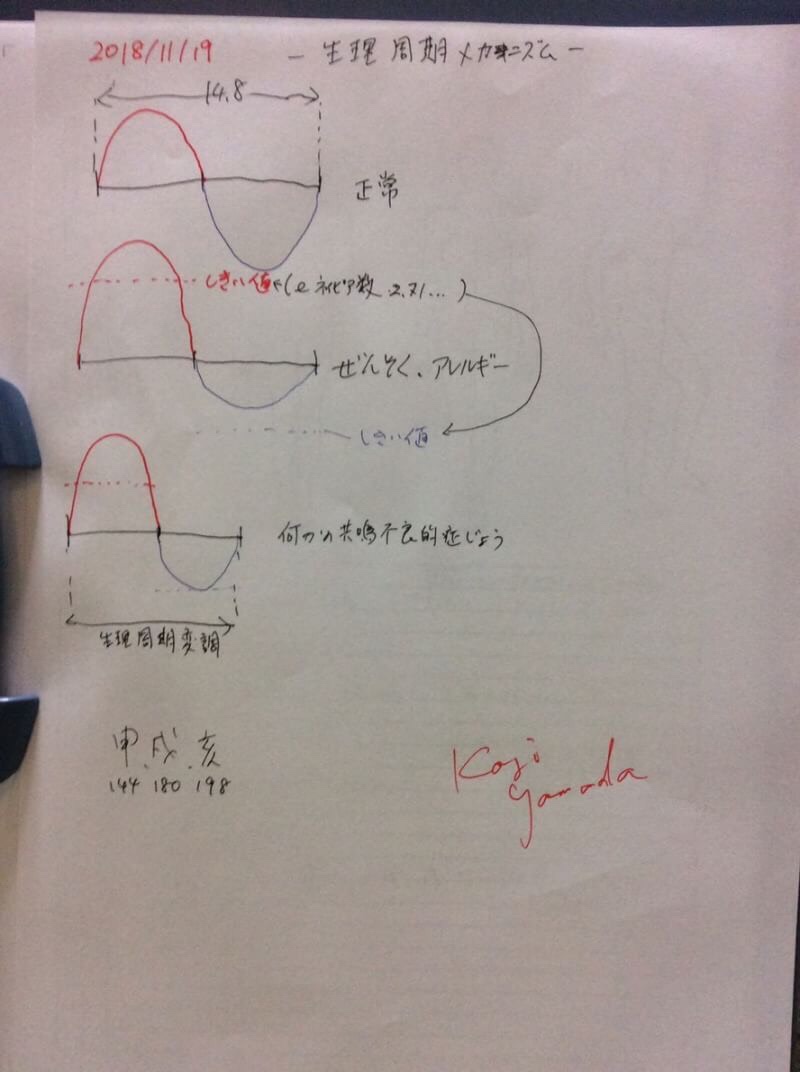 2018/11/19 － 生理周期メカニズム －
14.8
正常
しきい値（e ネイピア数 2.71...）
ぜんそく、アレルギー
しきい値
何かの共鳴不良的症じょう
生理周期変調
申.戌.亥
144 180 198
Koji
yamada